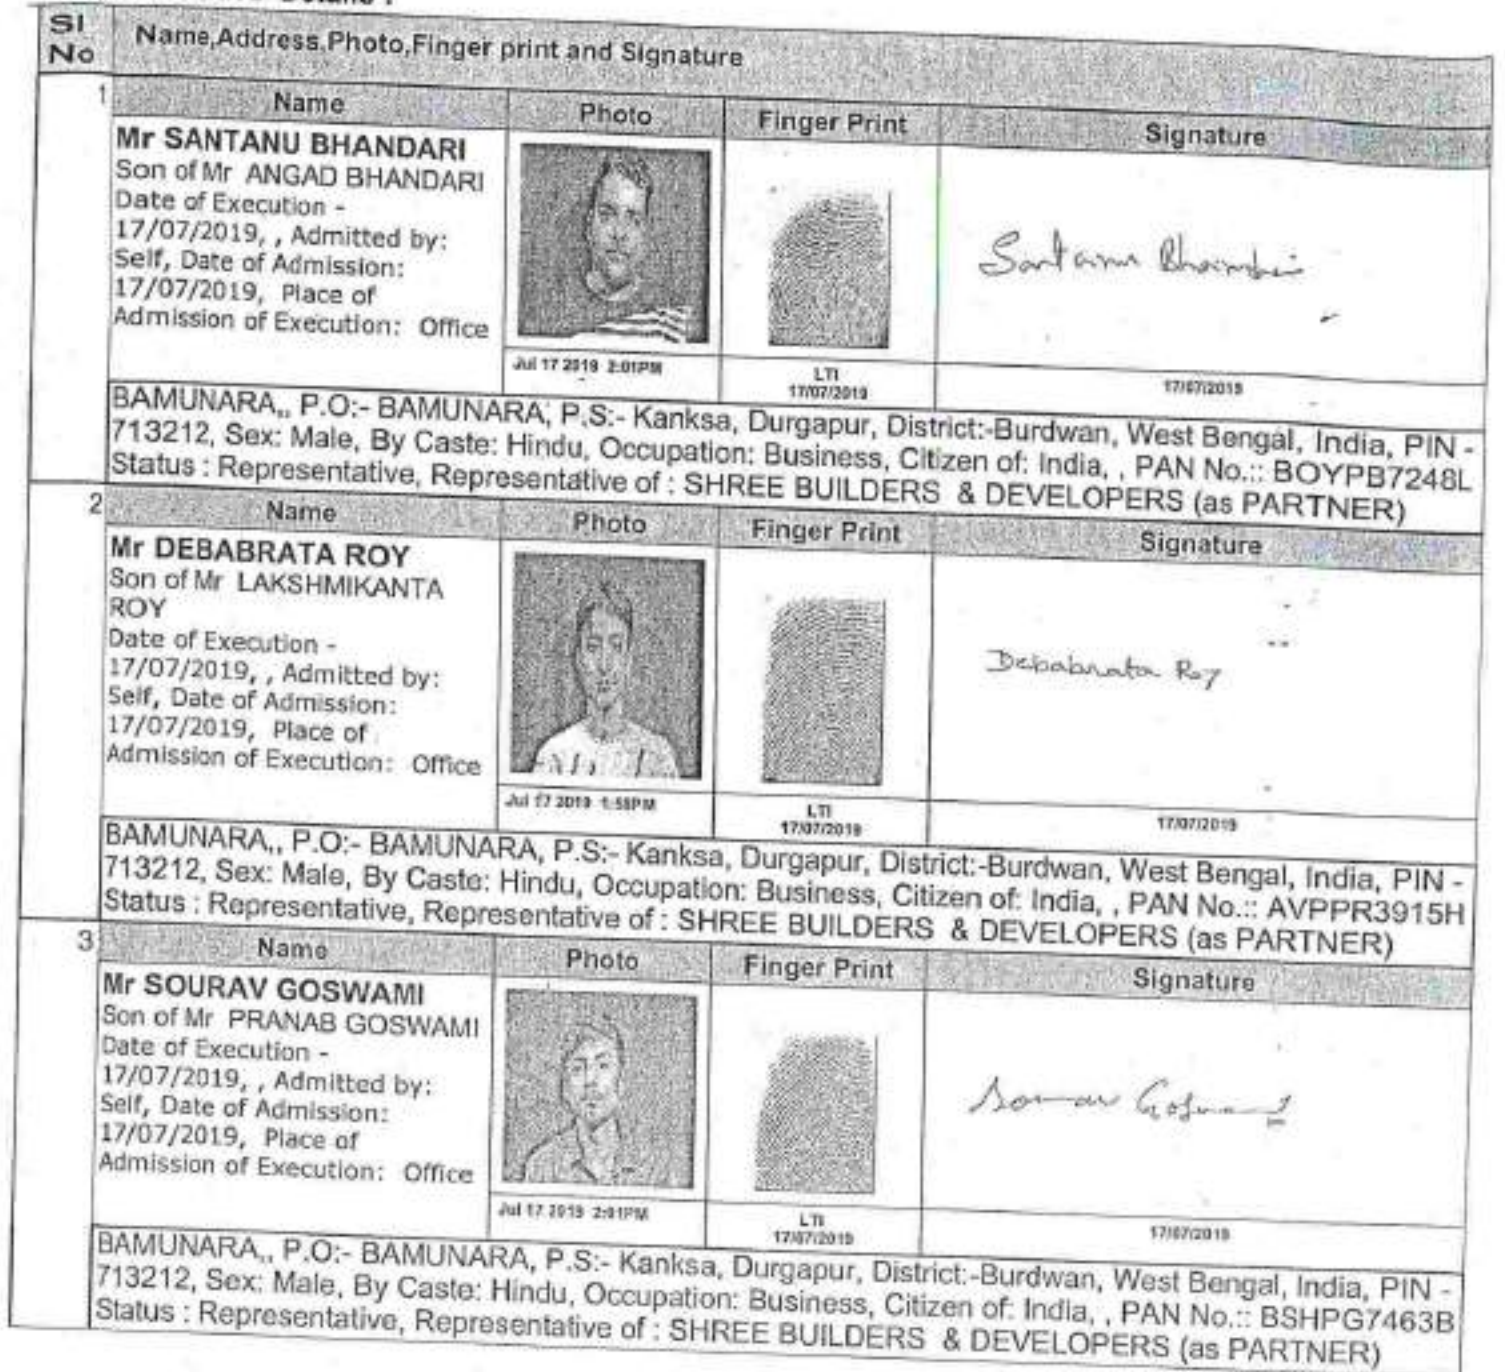 Sl No
Name,Address,Photo,Finger print and Signature
1
Name
Photo
Finger Print
Signature
Mr SANTANU BHANDARI
Son of Mr ANGAD BHANDARI
Date of Execution -
17/07/2019, , Admitted by:
Self, Date of Admission:
17/07/2019, Place of
Admission of Execution: Office
Santanu Bhandari
Jul 17 2019 2:01PM
LTI
17/07/2019
17/07/2019
BAMUNARA,, P.O:- BAMUNARA, P.S:- Kanksa, Durgapur, District:-Burdwan, West Bengal, India, PIN -
713212, Sex: Male, By Caste: Hindu, Occupation: Business, Citizen of: India, , PAN No.:: BOYPB7248L
Status : Representative, Representative of : SHREE BUILDERS & DEVELOPERS (as PARTNER)
2
Name
Photo
Finger Print
Signature
Mr DEBABRATA ROY
Son of Mr LAKSHMIKANTA
ROY
Date of Execution -
17/07/2019, , Admitted by:
Self, Date of Admission:
17/07/2019, Place of
Admission of Execution: Office
Debabrata Roy
Jul 17 2019 1:58PM
LTI
17/07/2019
17/07/2019
BAMUNARA,, P.O:- BAMUNARA, P.S:- Kanksa, Durgapur, District:-Burdwan, West Bengal, India, PIN -
713212, Sex: Male, By Caste: Hindu, Occupation: Business, Citizen of: India, , PAN No.:: AVPPR3915H
Status : Representative, Representative of : SHREE BUILDERS & DEVELOPERS (as PARTNER)
3
Name
Photo
Finger Print
Signature
Mr SOURAV GOSWAMI
Son of Mr PRANAB GOSWAMI
Date of Execution -
17/07/2019, , Admitted by:
Self, Date of Admission:
17/07/2019, Place of
Admission of Execution: Office
Sourav Goswami
Jul 17 2019 2:01PM
LTI
17/07/2019
17/07/2019
BAMUNARA,, P.O:- BAMUNARA, P.S:- Kanksa, Durgapur, District:-Burdwan, West Bengal, India, PIN -
713212, Sex: Male, By Caste: Hindu, Occupation: Business, Citizen of: India, , PAN No.:: BSHPG7463B
Status : Representative, Representative of : SHREE BUILDERS & DEVELOPERS (as PARTNER)